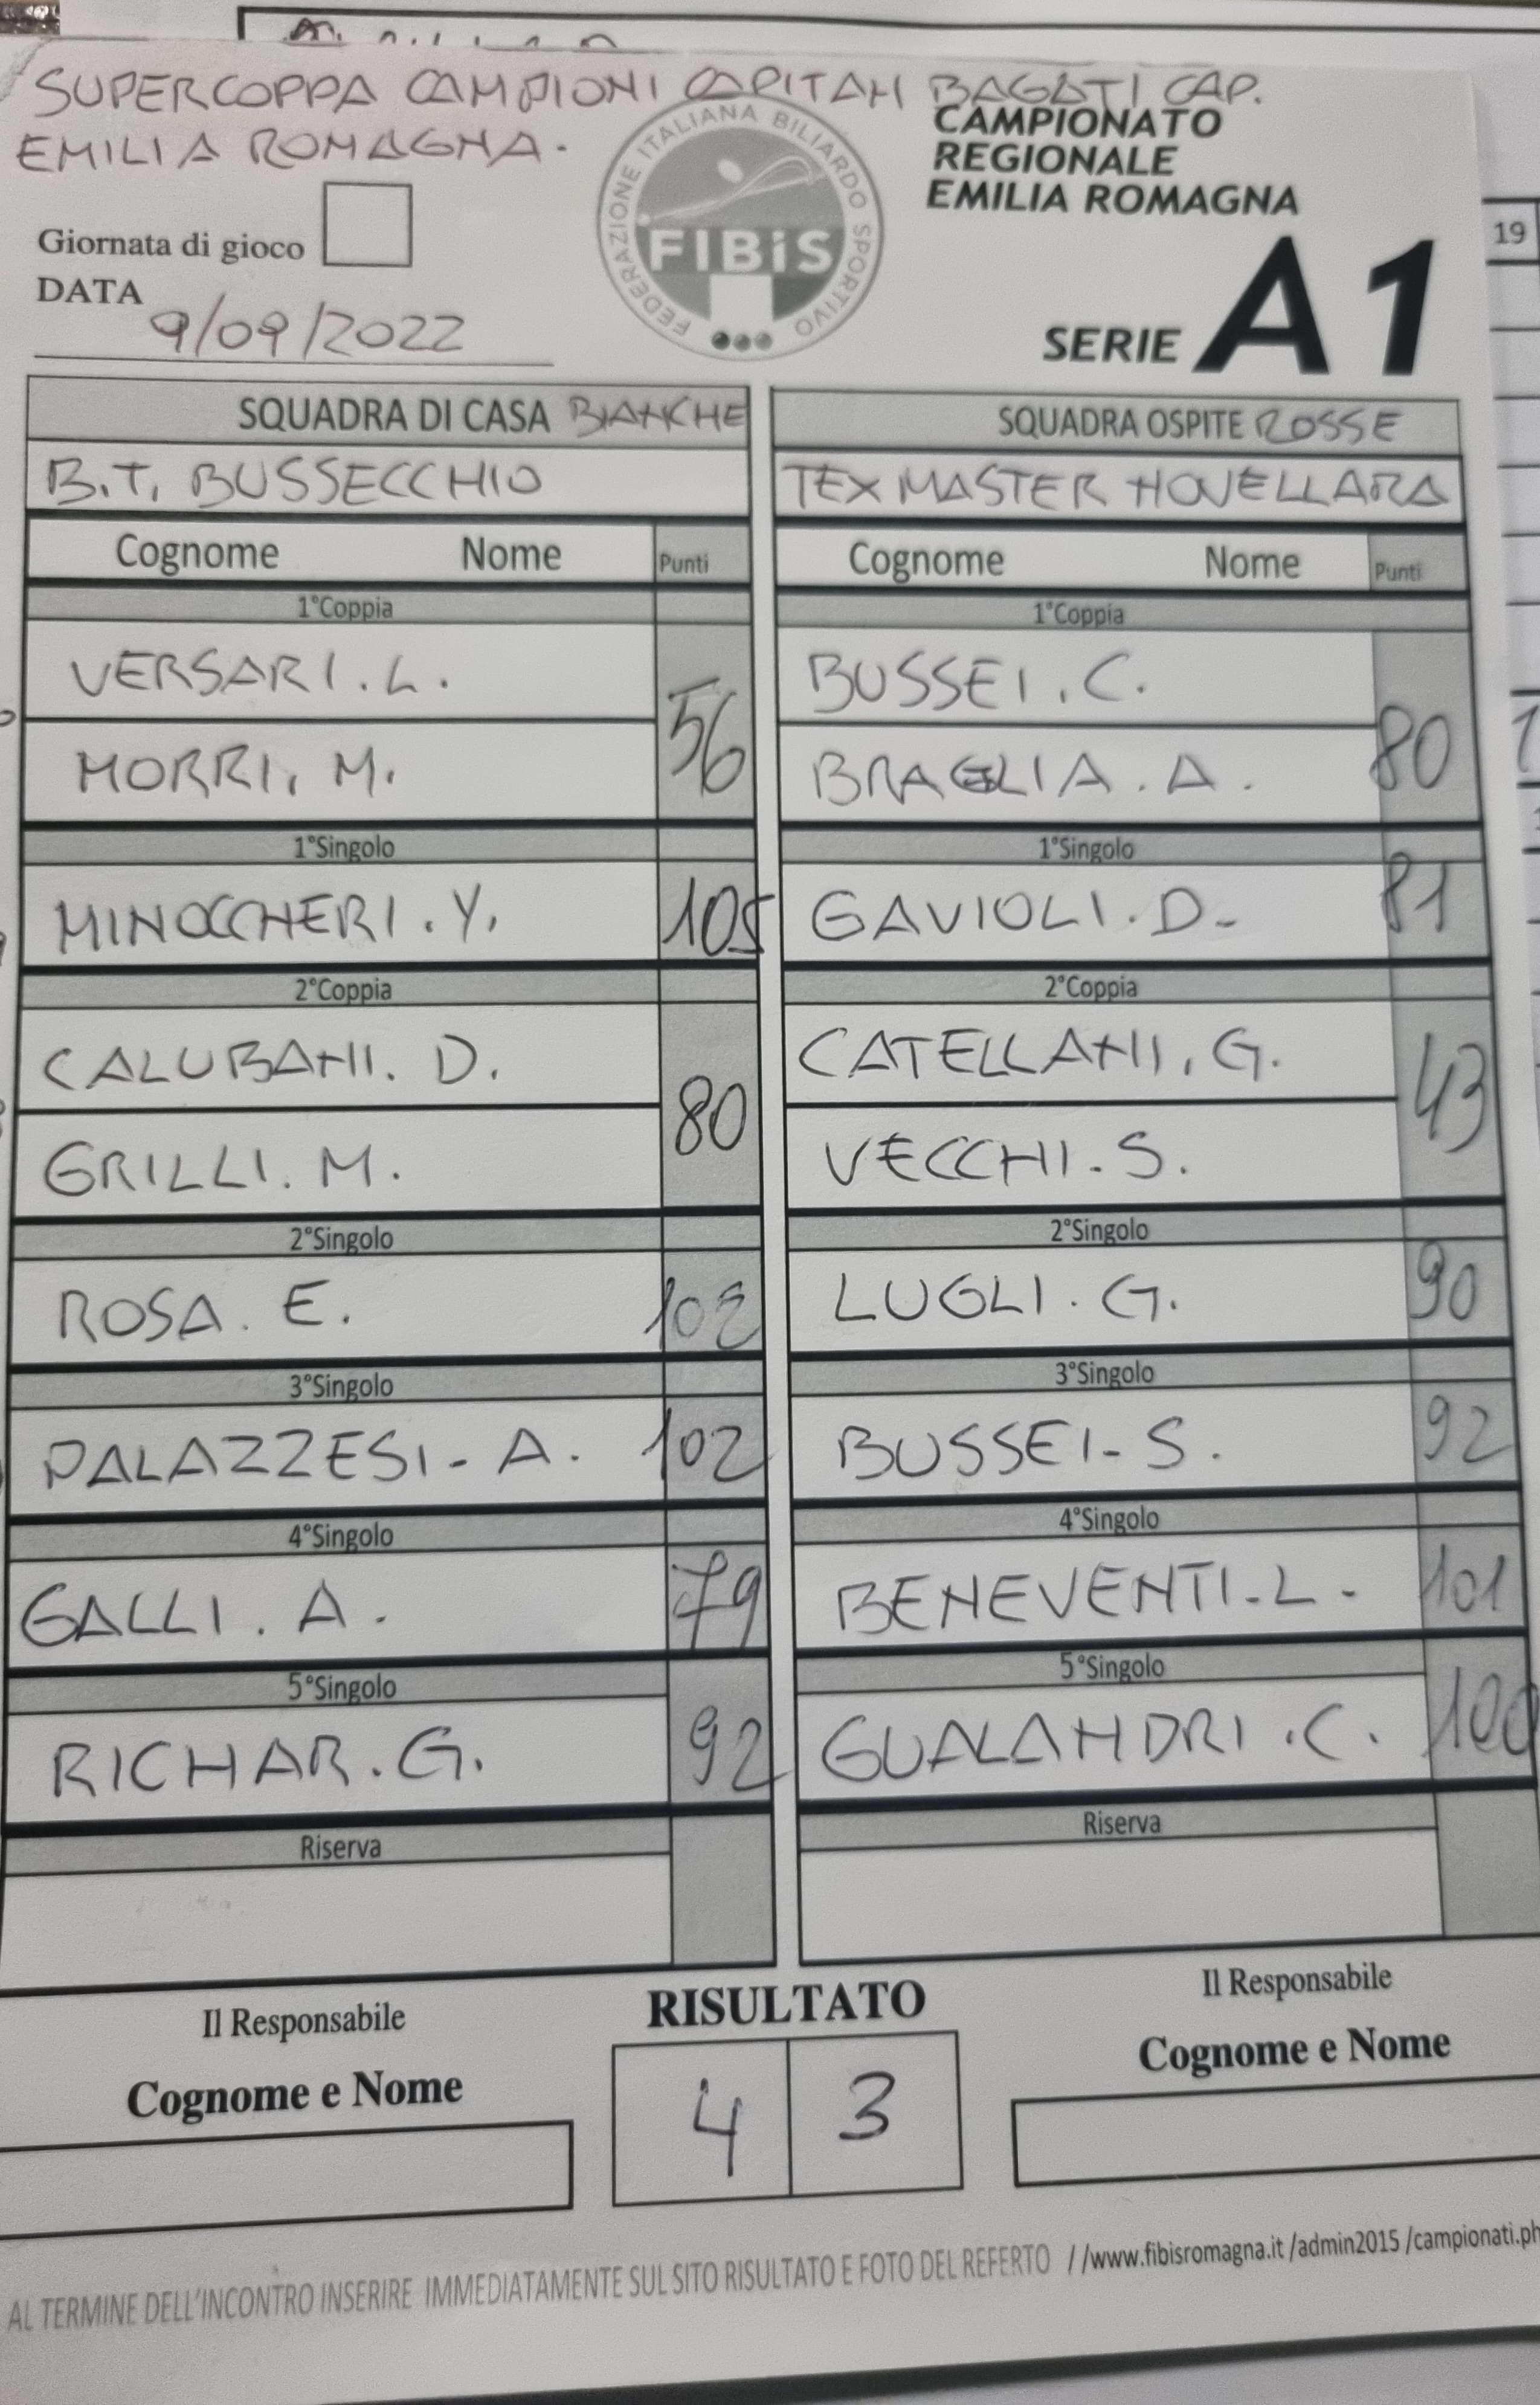 SUPERCOPPA CAMPIONI CAPITAN BAGATI CAP.
EMILIA ROMAGNA.
FEDERAZIONE ITALIANA BILIARDO SPORTIVO
FIBiS
CAMPIONATO
REGIONALE
EMILIA ROMAGNA
SERIE A1
Giornata di gioco
DATA 9/09/2022
19
SQUADRA DI CASA BIANCHE
SQUADRA OSPITE ROSSE
B.T. BUSSECCHIO
TEX MASTER NOVELLARA
Cognome Nome Punti
Cognome Nome Punti
1°Coppia
1°Coppia
VERSARI. L.
BUSSEI. C.
56
80
MORRI. M.
BRAGLIA. A.
1°Singolo
1°Singolo
MINOCCHERI. Y. 105
GAVIOLI. D- 81
2°Coppia
2°Coppia
CALUBANI. D.
CATELLANI. G.
80
43
GRILLI. M.
VECCHI-S.
2°Singolo
2°Singolo
ROSA. E.
LUGLI. G. 90
3°Singolo
3°Singolo
PALAZZESI- A. 102
BUSSEI- S. 92
4°Singolo
4°Singolo
GALLI. A. 79
BENEVENTI-L- 101
5°Singolo
5°Singolo
RICHAR. G. 92
GUALANDRI.C. 100
Riserva
Riserva
Il Responsabile
RISULTATO
Il Responsabile
Cognome e Nome
4 3
Cognome e Nome
AL TERMINE DELL'INCONTRO INSERIRE IMMEDIATAMENTE SUL SITO RISULTATO E FOTO DEL REFERTO //www.fibisromagna.it /admin2015 /campionati.ph